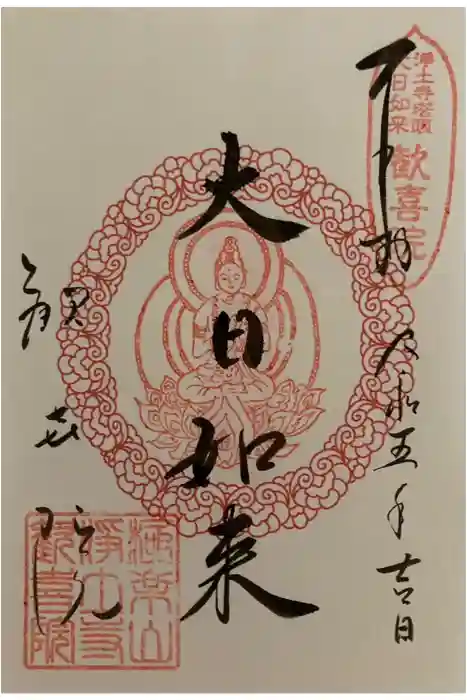 奉拝
浄土寺塔頭
大日如来
歓喜院
令和五年吉日
大日如来
歓喜院
極楽山
浄土寺
歓喜院